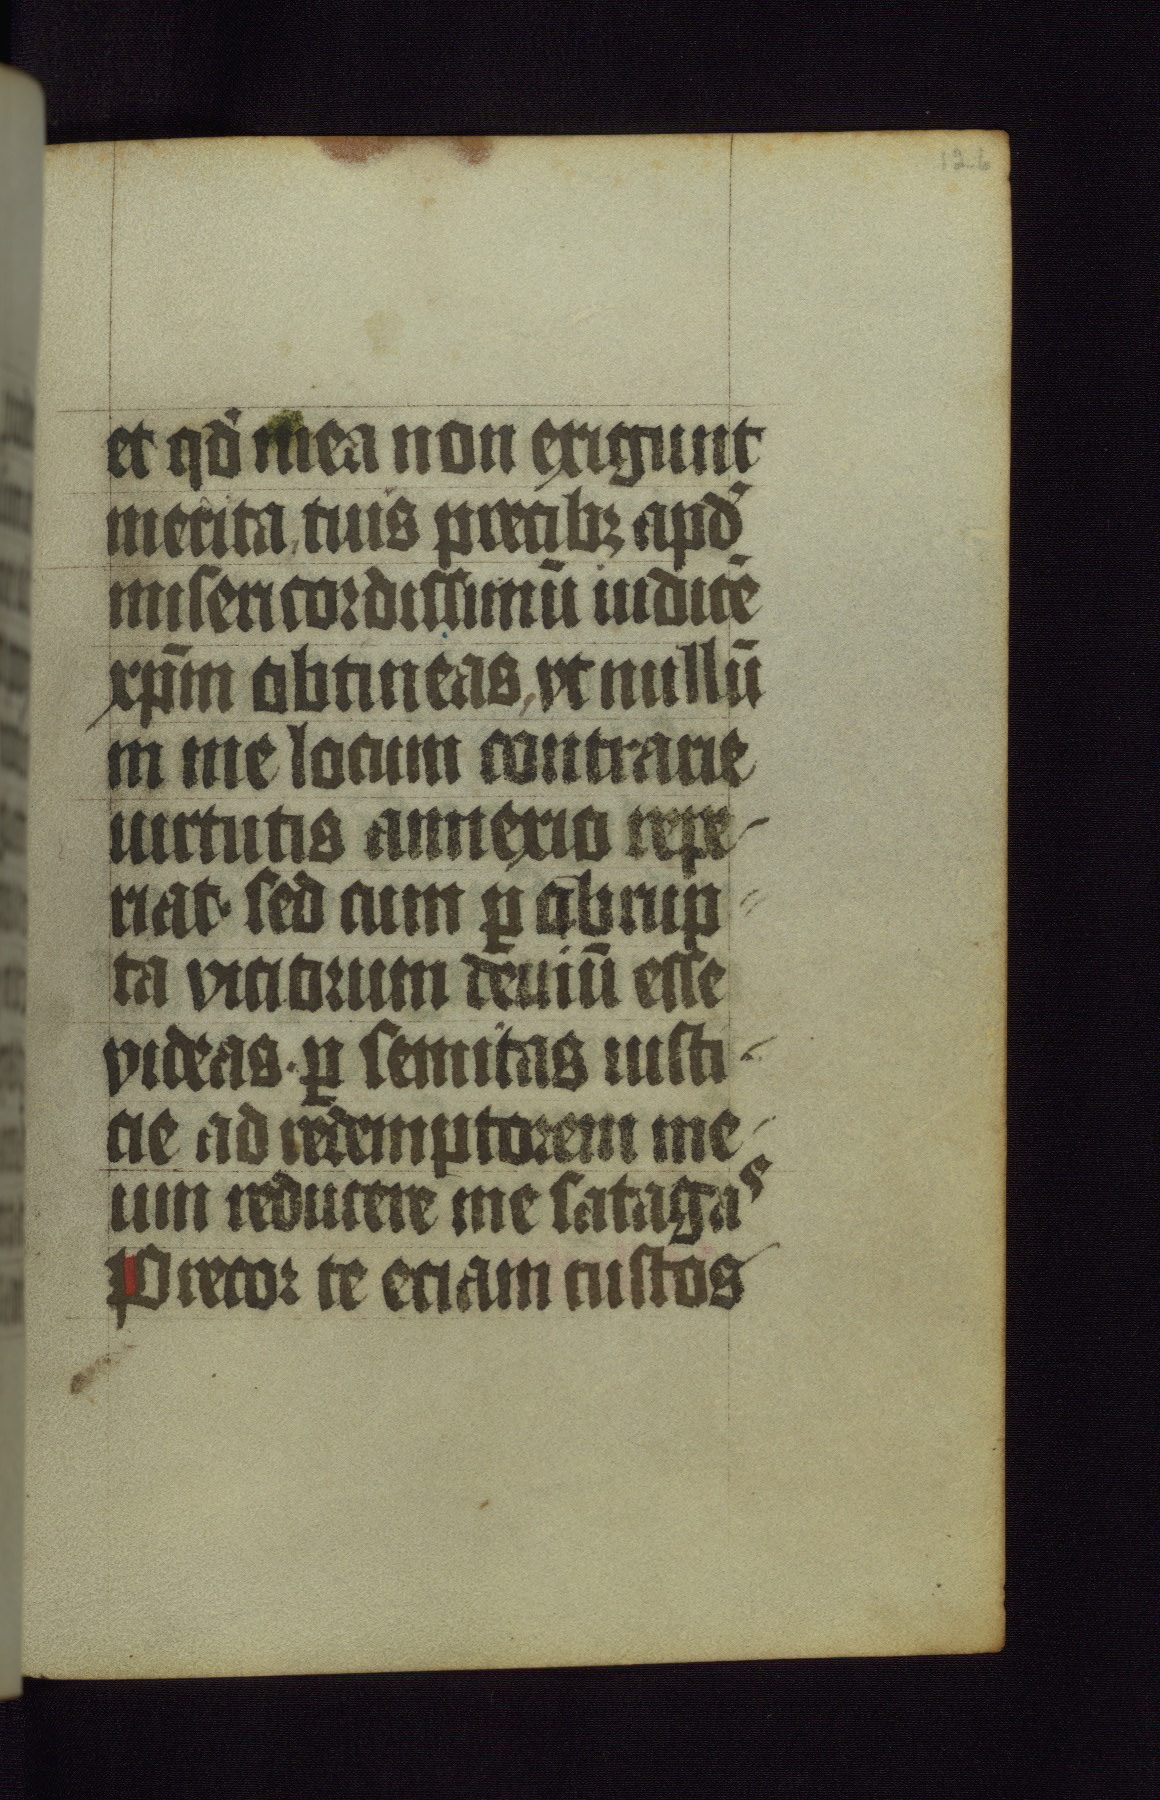 126
et qd̄ mea non exigunt
merita, tuis precibꝫ apd̄
misericordissimū iudicē
xp̄m obtineas, vt nullū
in me locum contrarie
uirtutis annexio repe-
riat. sed cum ꝑ abrup-
ta viciorum deuiū esse
videas. ꝑ semitas iusti-
cie ad redemptorem me-
um reducere me satagas
Precor te eciam custos